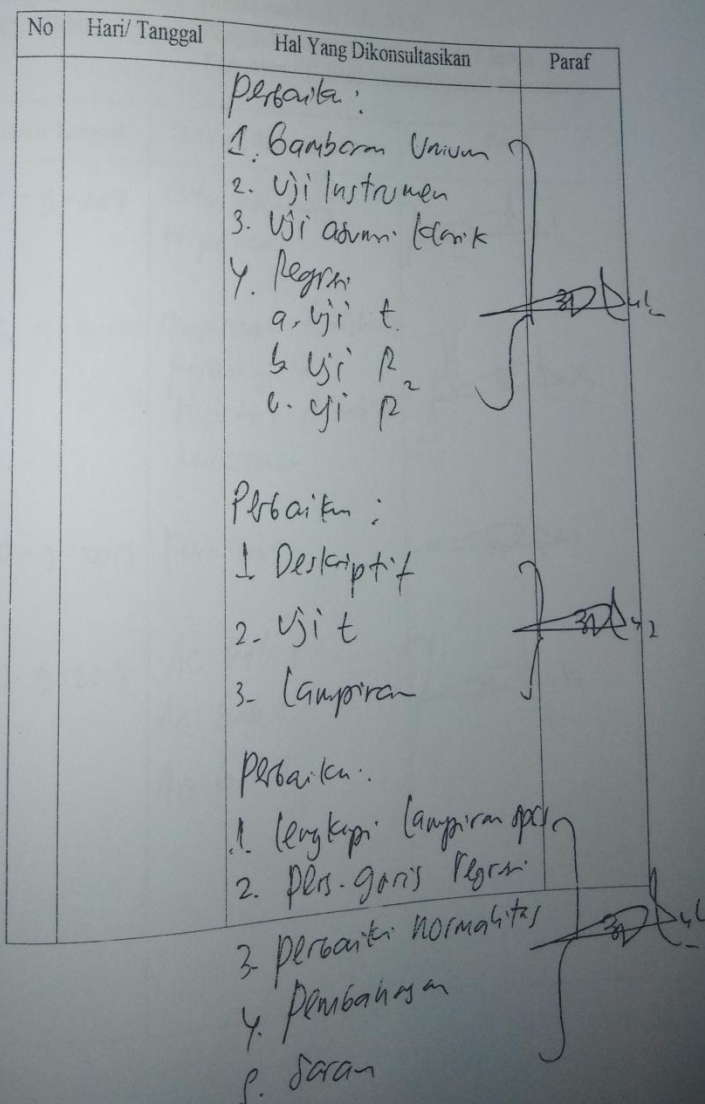 No Hari/ Tanggal Hal Yang Dikonsultasikan Paraf
Perbaiki :
1. Gambaran Umum
2. Uji Instrumen
3. Uji asumsi klasik
4. Regresi
a. Uji t.
b. Uji R
c. Uji R²
Perbaikan :
1 Deskriptif
2. Uji t
3. Lampiran
Perbaikan :
1. lengkapi lampiran spss
2. Pers. garis regresi
3. perbaiki normalitas
4. Pembahasan
5. Saran